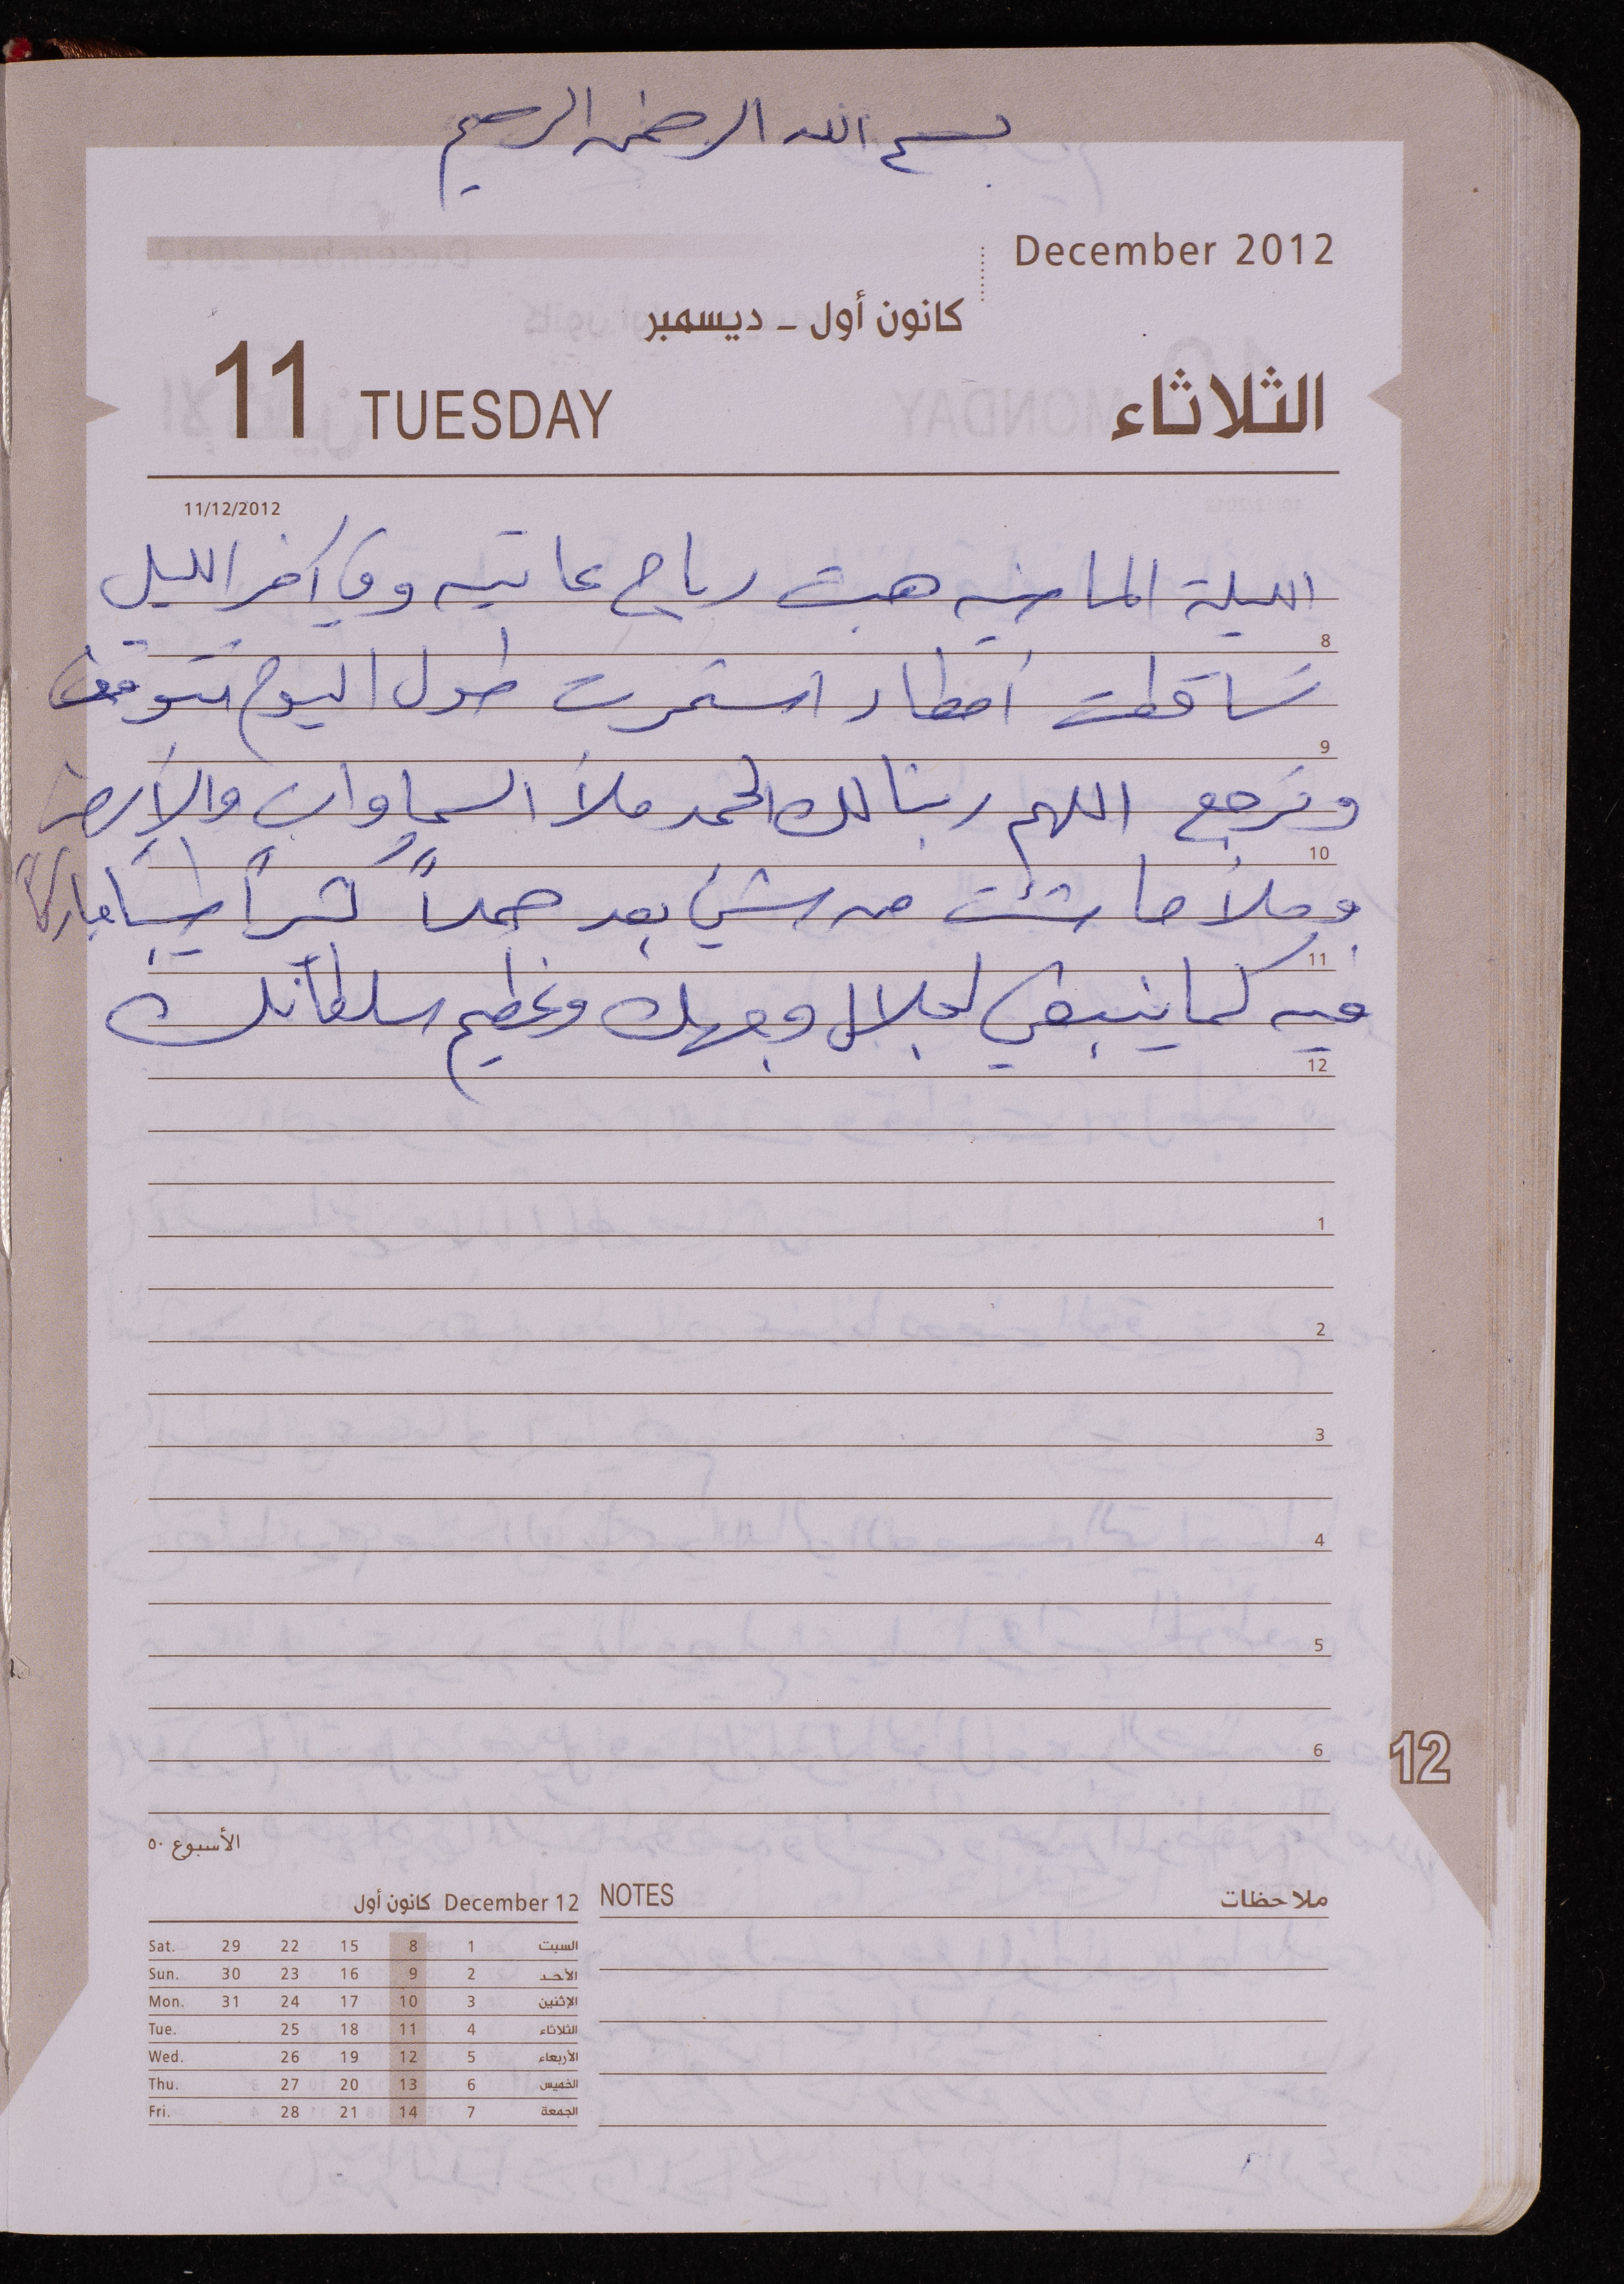 بسم الله الرحمن الرحيم
December 2012
كانون أول - ديسمبر
11 TUESDAY الثلاثاء
11/12/2012
الليلة الماضيه هبت رياح عاتيه وفي آخر الليل
8
تساقطت أمطار استمرت طول اليوم تتوقف
9
وترجع اللهم ربنا لك الحمد ملأ السماوات والأرض
10
وملأ ما شئت من شيء بعد حمداً كثيراً طيبا مباركاً
11
فيه كما ينبغي لجلال وجهك وعظيم سلطانك
12
1
2
3
4
5
6
12
الأسبوع ٥٠
كانون أول December 12
NOTES ملاحظات
Sat. 29 22 15 8 1 السبت
Sun. 30 23 16 9 2 الأحد
Mon. 31 24 17 10 3 الإثنين
Tue. 25 18 11 4 الثلاثاء
Wed. 26 19 12 5 الأربعاء
Thu. 27 20 13 6 الخميس
Fri. 28 21 14 7 الجمعة